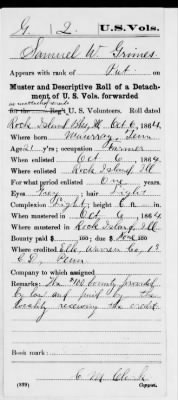 G | 2 | U.S. Vols.
Samuel W. Grimes
Appears with rank of Pvt on
Muster and Descriptive Roll of a Detach-
ment of U. S. Vols. forwarded
for the Reg't U. S. Volunteers. Roll dated
Rock Island Bks, Ill Oct 6, 1864.
Where born Murray, Tenn
Age 21 y'rs; occupation Farmer
When enlisted Oct 6, 1864
Where enlisted Rock Island Ill
For what period enlisted One years.
Eyes Grey; hair Light
Complexion Light; height 6 ft. in.
When mustered in Oct 6, 1864
Where mustered in Rock Island, Ill.
Bounty paid $ 100; due $ 100
Where credited Elk, Warren Co., 19
C.D., Penn
Company to which assigned
Remarks: The $100 bounty provided
by law and paid by the
locality receiving the credit
Book mark:
(339)